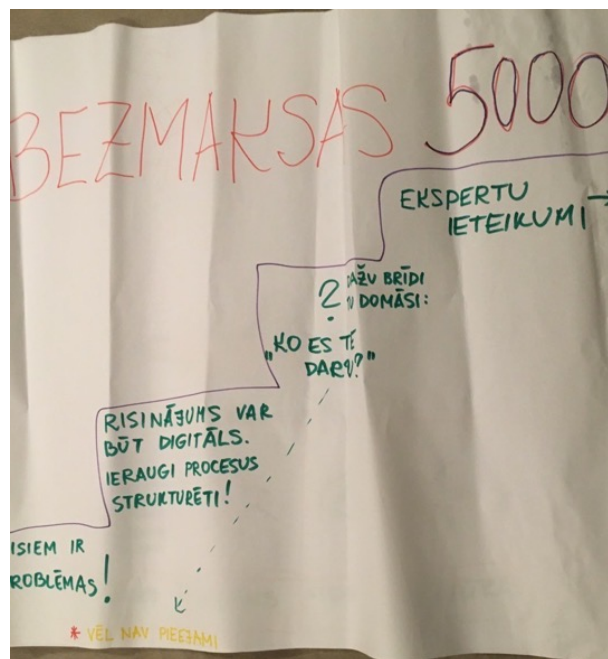 BEZMAKSAS 5000
EKSPERTU →
IETEIKUMI
? DAŽU BRĪDI
DOMĀSI:
"KO ES TE
DARU?"
RISINĀJUMS VAR
BŪT DIGITĀLS.
IERAUGI PROCESUS
STRUKTURĒTI!
ISIEM IR
ROBLĒMAS!
* VĒL NAV PIEEJAMI